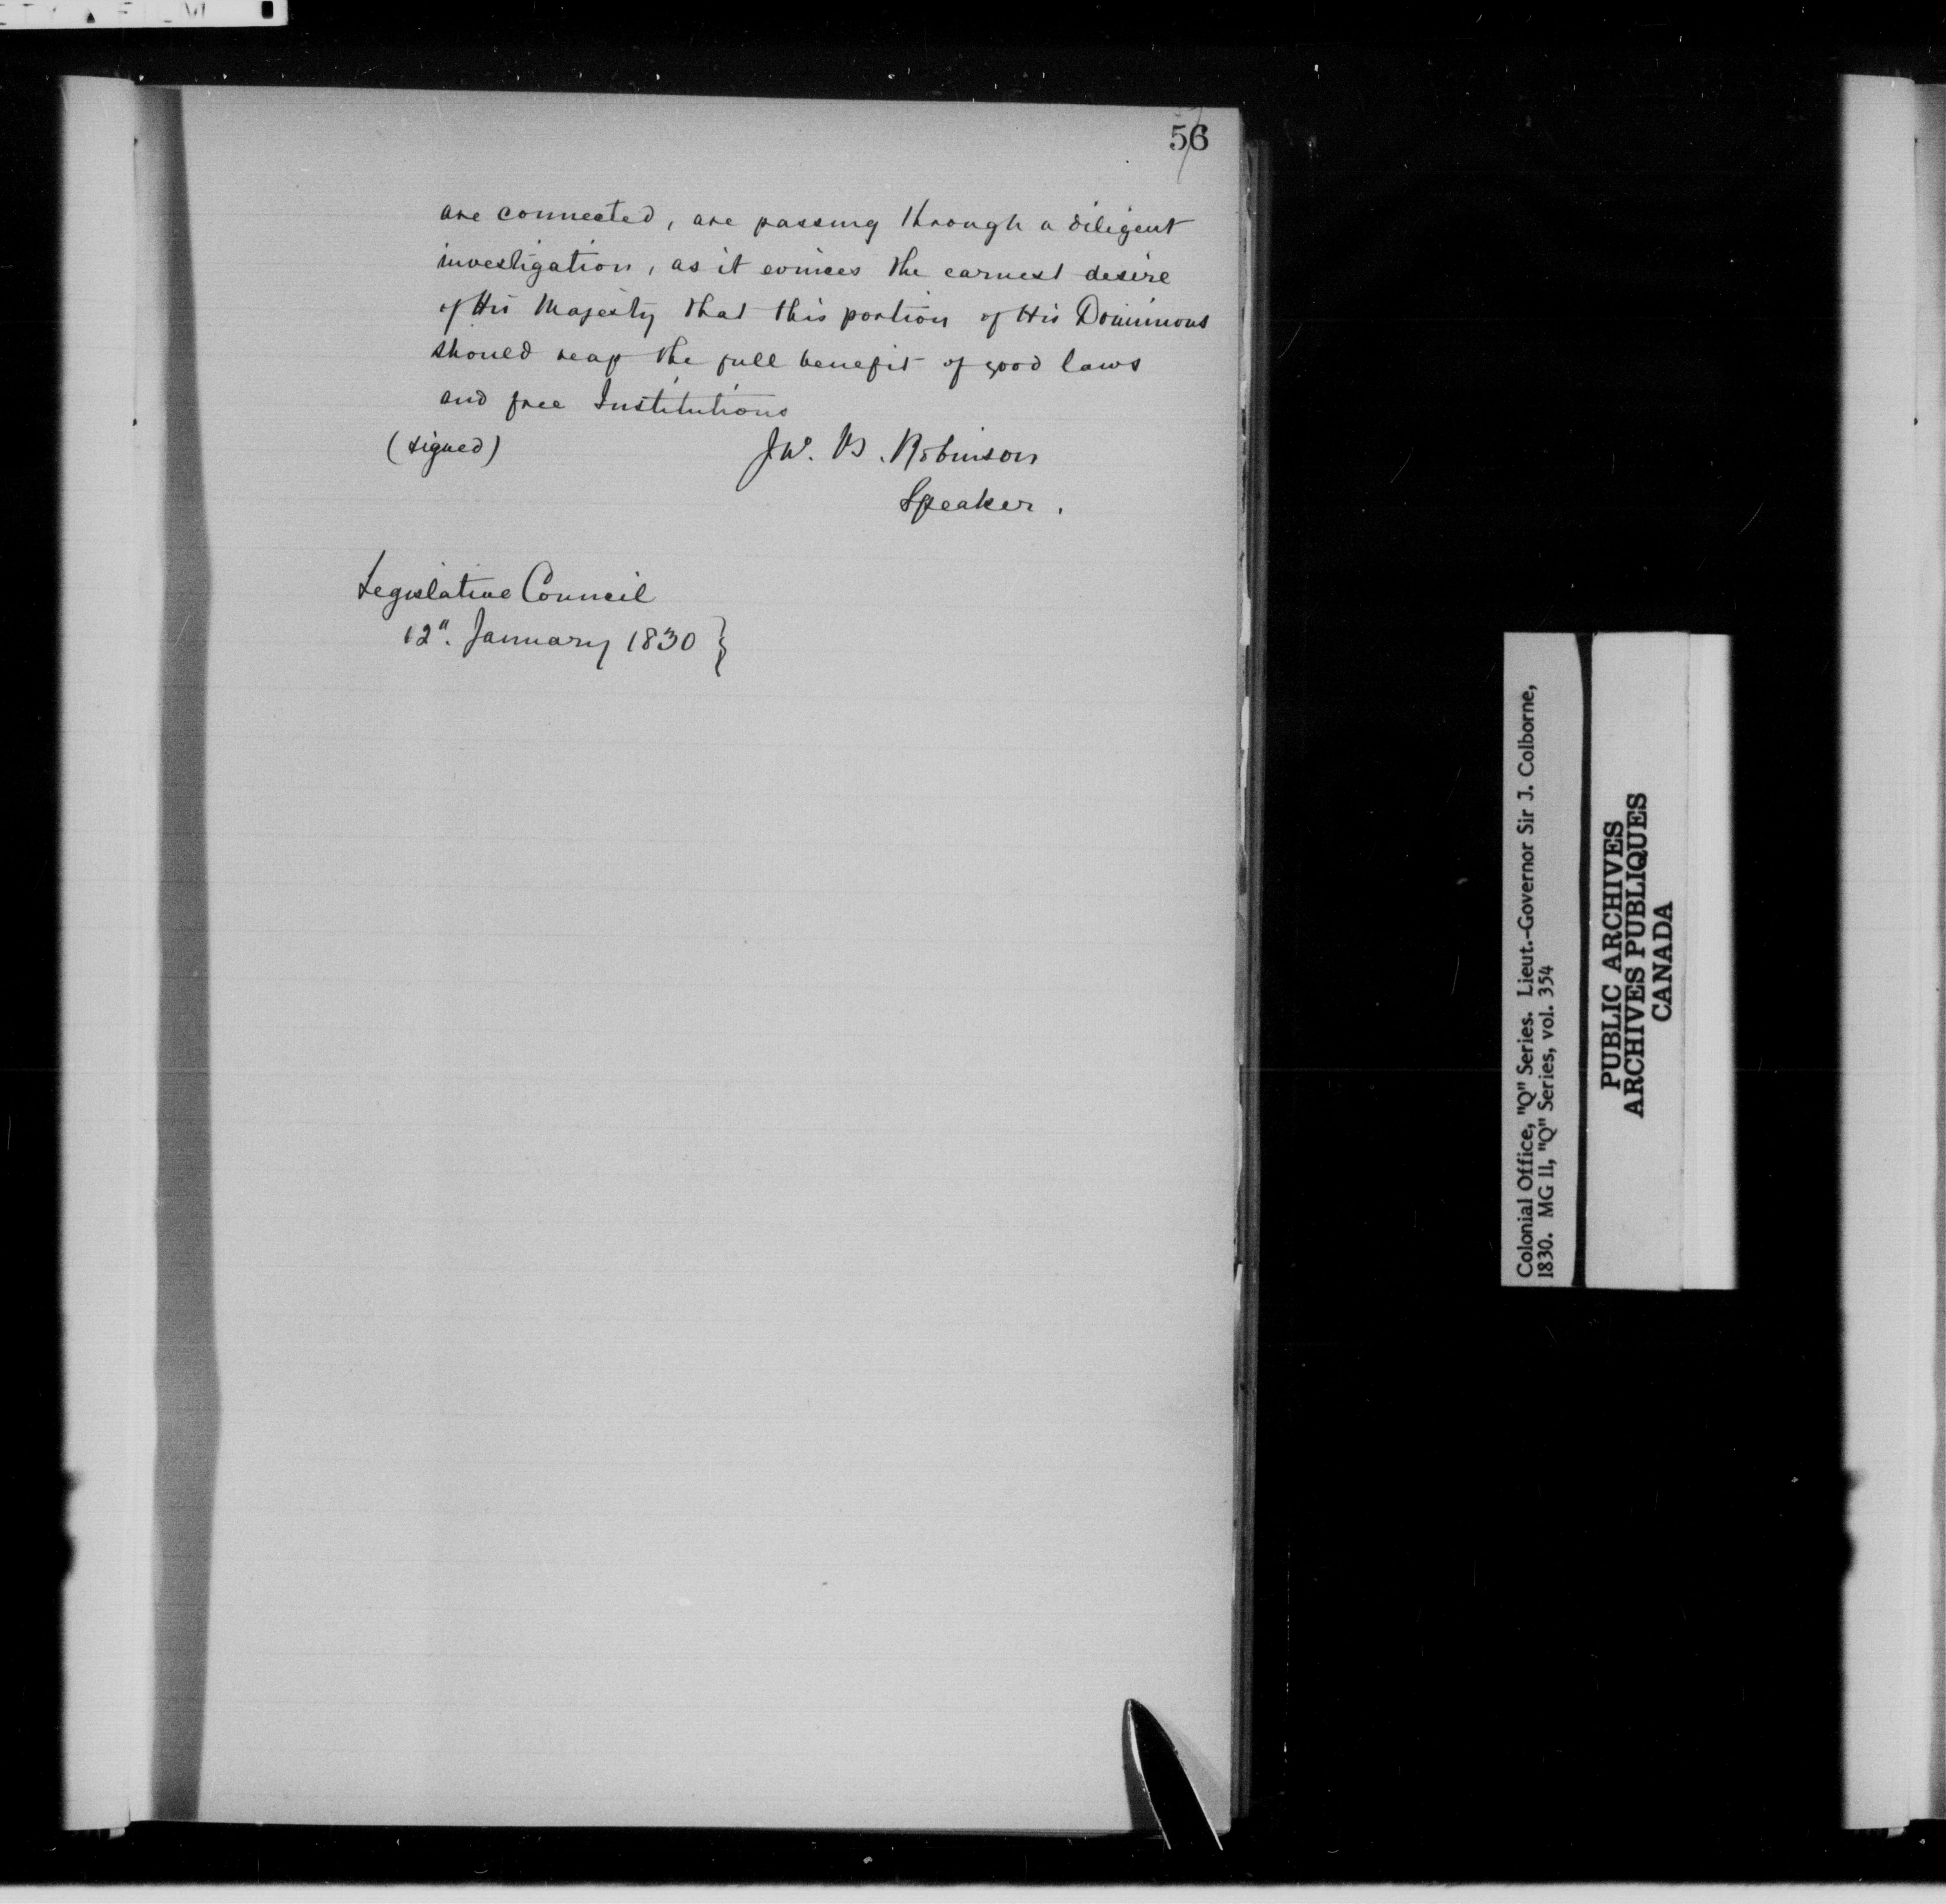 56
are connected, are passing through a diligent
investigation, as it evinces the earnest desire
of His Majesty that this portion of His Dominions
should reap the full benefit of good laws
and free Institutions
(signed) Jno. B. Robinson
Speaker.
Legislative Council
12". January 1830 }
Colonial Office, "Q" Series. Lieut.-Governor Sir J. Colborne,
1830. MG 11, "Q" Series, vol. 354
PUBLIC ARCHIVES
ARCHIVES PUBLIQUES
CANADA